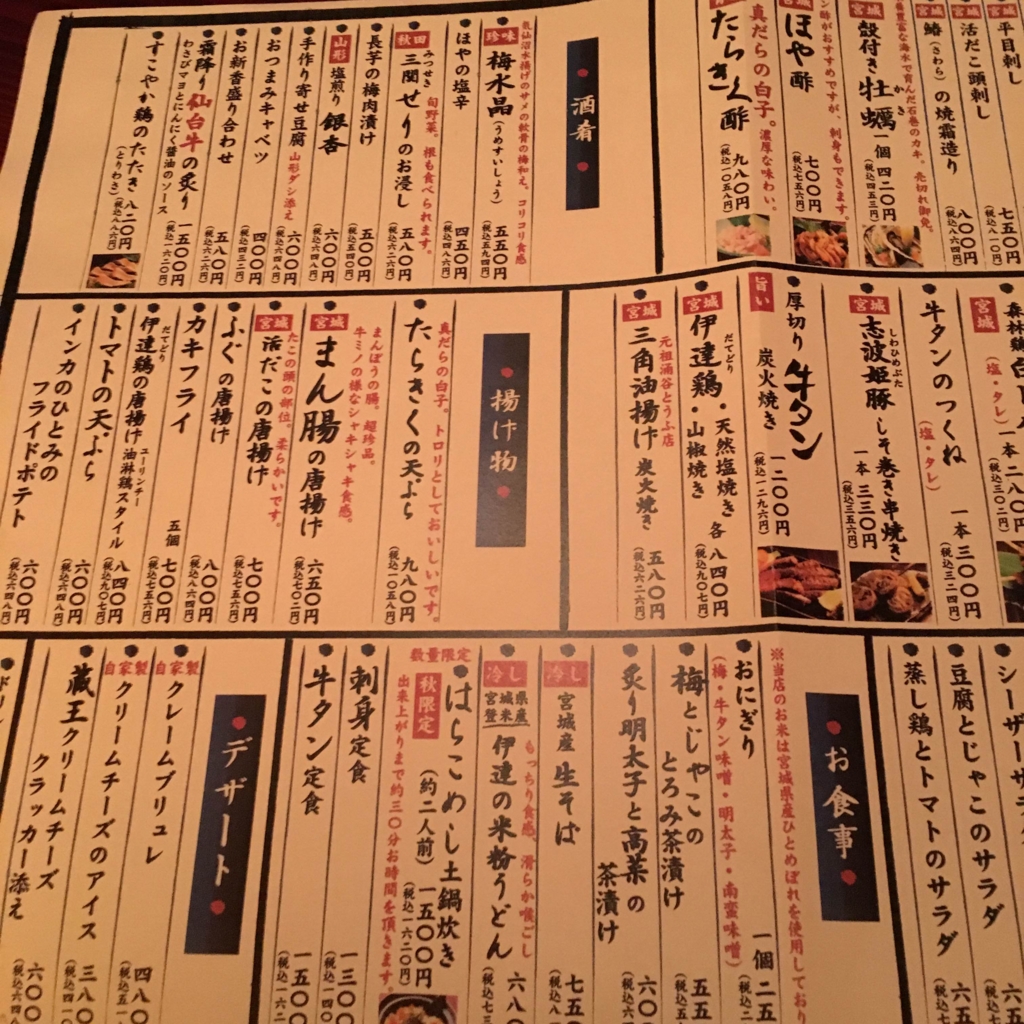 宮城
平目刺し
七五〇円
(税込八一〇円)
宮城
活だこ頭刺し
八〇〇円
(税込八六四円)
宮城
鰆(さわら)の焼霜造り
宮城
殻付き牡蠣 一個 四二〇円
かき
(税込四五三円)
栄養豊富な海水で育んだ石巻のカキ。売切れ御免。
ほや酢
七〇〇円
(税込七五六円)
ン酢がおすすめですが、刺身もできます。
たらきく酢
九八〇円
(税込一〇五八円)
真だらの白子。濃厚な味わい。
酒肴
気仙沼水揚げのサメの軟骨の梅和え。コリコリ食感
珍味
梅水晶(うめすいしょう)
五五〇円
(税込五九四円)
ほやの塩辛
四五〇円
(税込四八六円)
秋田
みつせき
三関せりのお浸し
旬野菜。根も食べられます。
五八〇円
(税込六二六円)
長芋の梅肉漬け
五〇〇円
(税込五四〇円)
山形
塩煎り銀杏
六〇〇円
(税込六四八円)
手作り寄せ豆腐 山形ダシ添え
六〇〇円
(税込六四八円)
おつまみキャベツ
四〇〇円
(税込四三二円)
お新香盛り合わせ
五八〇円
(税込六二六円)
霜降り仙台牛の炙り
わさびマヨとにんにく醤油のソース
一五〇〇円
(税込一六二〇円)
すこやか鶏のたたき
(とりわさ)
八二〇円
(税込八八六円)
宮城
森林鶏
(塩・タレ)
一本 二八〇円
(税込三〇二円)
牛タンのつくね
(塩・タレ)
一本 三〇〇円
(税込三二四円)
宮城
しわひめぶた
志波姫豚 しそ巻き串焼き
一本 三三〇円
(税込三五六円)
旨い
厚切り牛タン
炭火焼き
一二〇〇円
(税込一二九六円)
宮城
だてどり
伊達鶏・天然塩焼き
・山椒焼き
各 八四〇円
(税込九〇七円)
宮城
三角油揚げ 炭火焼き
元祖涌谷とうふ店
五八〇円
(税込六二六円)
揚げ物
真だらの白子。トロリとしておいしいです。
たらきくの天ぷら
九八〇円
(税込一〇五八円)
まんぼうの腸。超珍品。
牛ミノの様なシャキシャキ食感。
宮城
まん腸の唐揚げ
六五〇円
(税込七〇二円)
たこの頭の部位。柔らかいです。
宮城
活だこの唐揚げ
七〇〇円
(税込七五六円)
ふぐの唐揚げ
八〇〇円
(税込八六四円)
カキフライ
五個 七〇〇円
(税込七五六円)
だてどり
伊達鶏の唐揚げ 油淋鶏スタイル
ユーリンチー
八四〇円
(税込九〇七円)
トマトの天ぷら
六〇〇円
(税込六四八円)
インカのひとみの
フライドポテト
六〇〇円
(税込六四八円)
シーザーサラダ
豆腐とじゃこのサラダ
蒸し鶏とトマトのサラダ
お食事
※当店のお米は宮城県産ひとめぼれを使用しており
おにぎり
(梅・牛タン味噌・明太子・南蛮味噌)
一個 二五
梅とじゃこの
とろみ茶漬け
五五
炙り明太子と高菜の
茶漬け
六〇
冷し
宮城産 生そば
七五
冷し
宮城県
登米産
伊達の米粉うどん
もっちり食感、滑らか喉ごし
六八
数量限定
秋限定
はらこめし土鍋炊き
(約二人前)
一五〇〇円
(税込一六二〇円)
出来上がりまで約三〇分お時間を頂きます。
刺身定食
一三〇〇
牛タン定食
一五〇〇
デザート
自家製
クレームブリュレ
四八〇
自家製
クリームチーズのアイス
三八〇
蔵王クリームチーズ
クラッカー添え
六〇〇